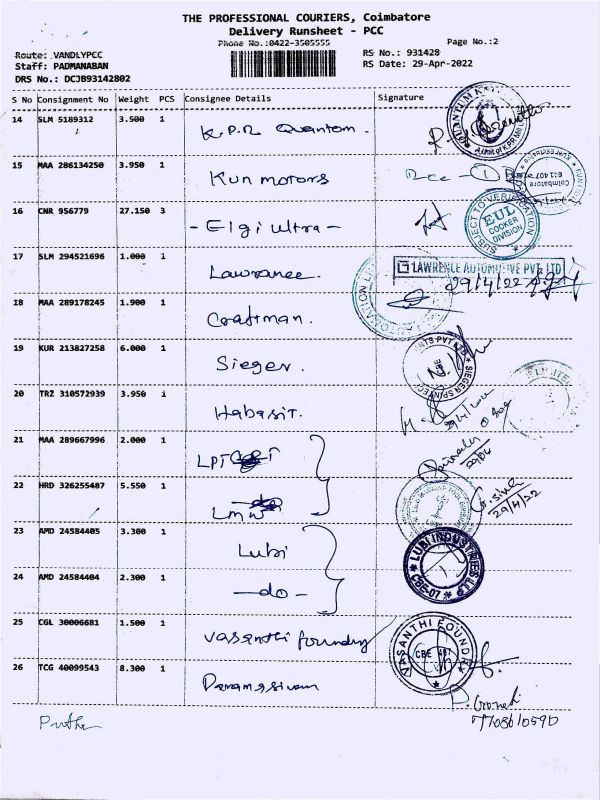 THE PROFESSIONAL COURIERS, Coimbatore
Delivery Runsheet - PCC
Phone No.:0422-3505555
Page No.:2
Route: VANDLYPCC
Staff: PADMANABAN
DRS No.: DCJB93142802
RS No.: 931428
RS Date: 29-Apr-2022
S No Consignment No Weight PCS Consignee Details Signature
14 SLM 5189312 3.500 1 K.P.R Quantum.
15 MAA 286134250 3.950 1 Kun motors
16 CNR 956779 27.150 3 - Elgi Ultra -
SUBJECT TO VERIFICATION
EUL
COOKER
DIVISION
17 SLM 294521696 1.000 1 Lawrance.
LAWRENCE AUTOMOTIVE PVT LTD
29/4/22
18 MAA 289178245 1.900 1 Craftman.
19 KUR 213827258 6.000 1 Sieger.
20 TRZ 310572939 3.950 1 Habasit.
21 MAA 289667996 2.000 1 LPT
22 HRD 326255487 5.550 1 LMW
29/4/22
23 AMD 24584405 3.300 1 Lubi
LUBI INDUSTRIES LLP
CBE-07
24 AMD 24584404 2.300 1 —do—
25 CGL 30006681 1.500 1 Vasanthi foundry
VASANTHI FOUNDRY
CBE
26 TCG 40099543 8.300 1 Paramasivam